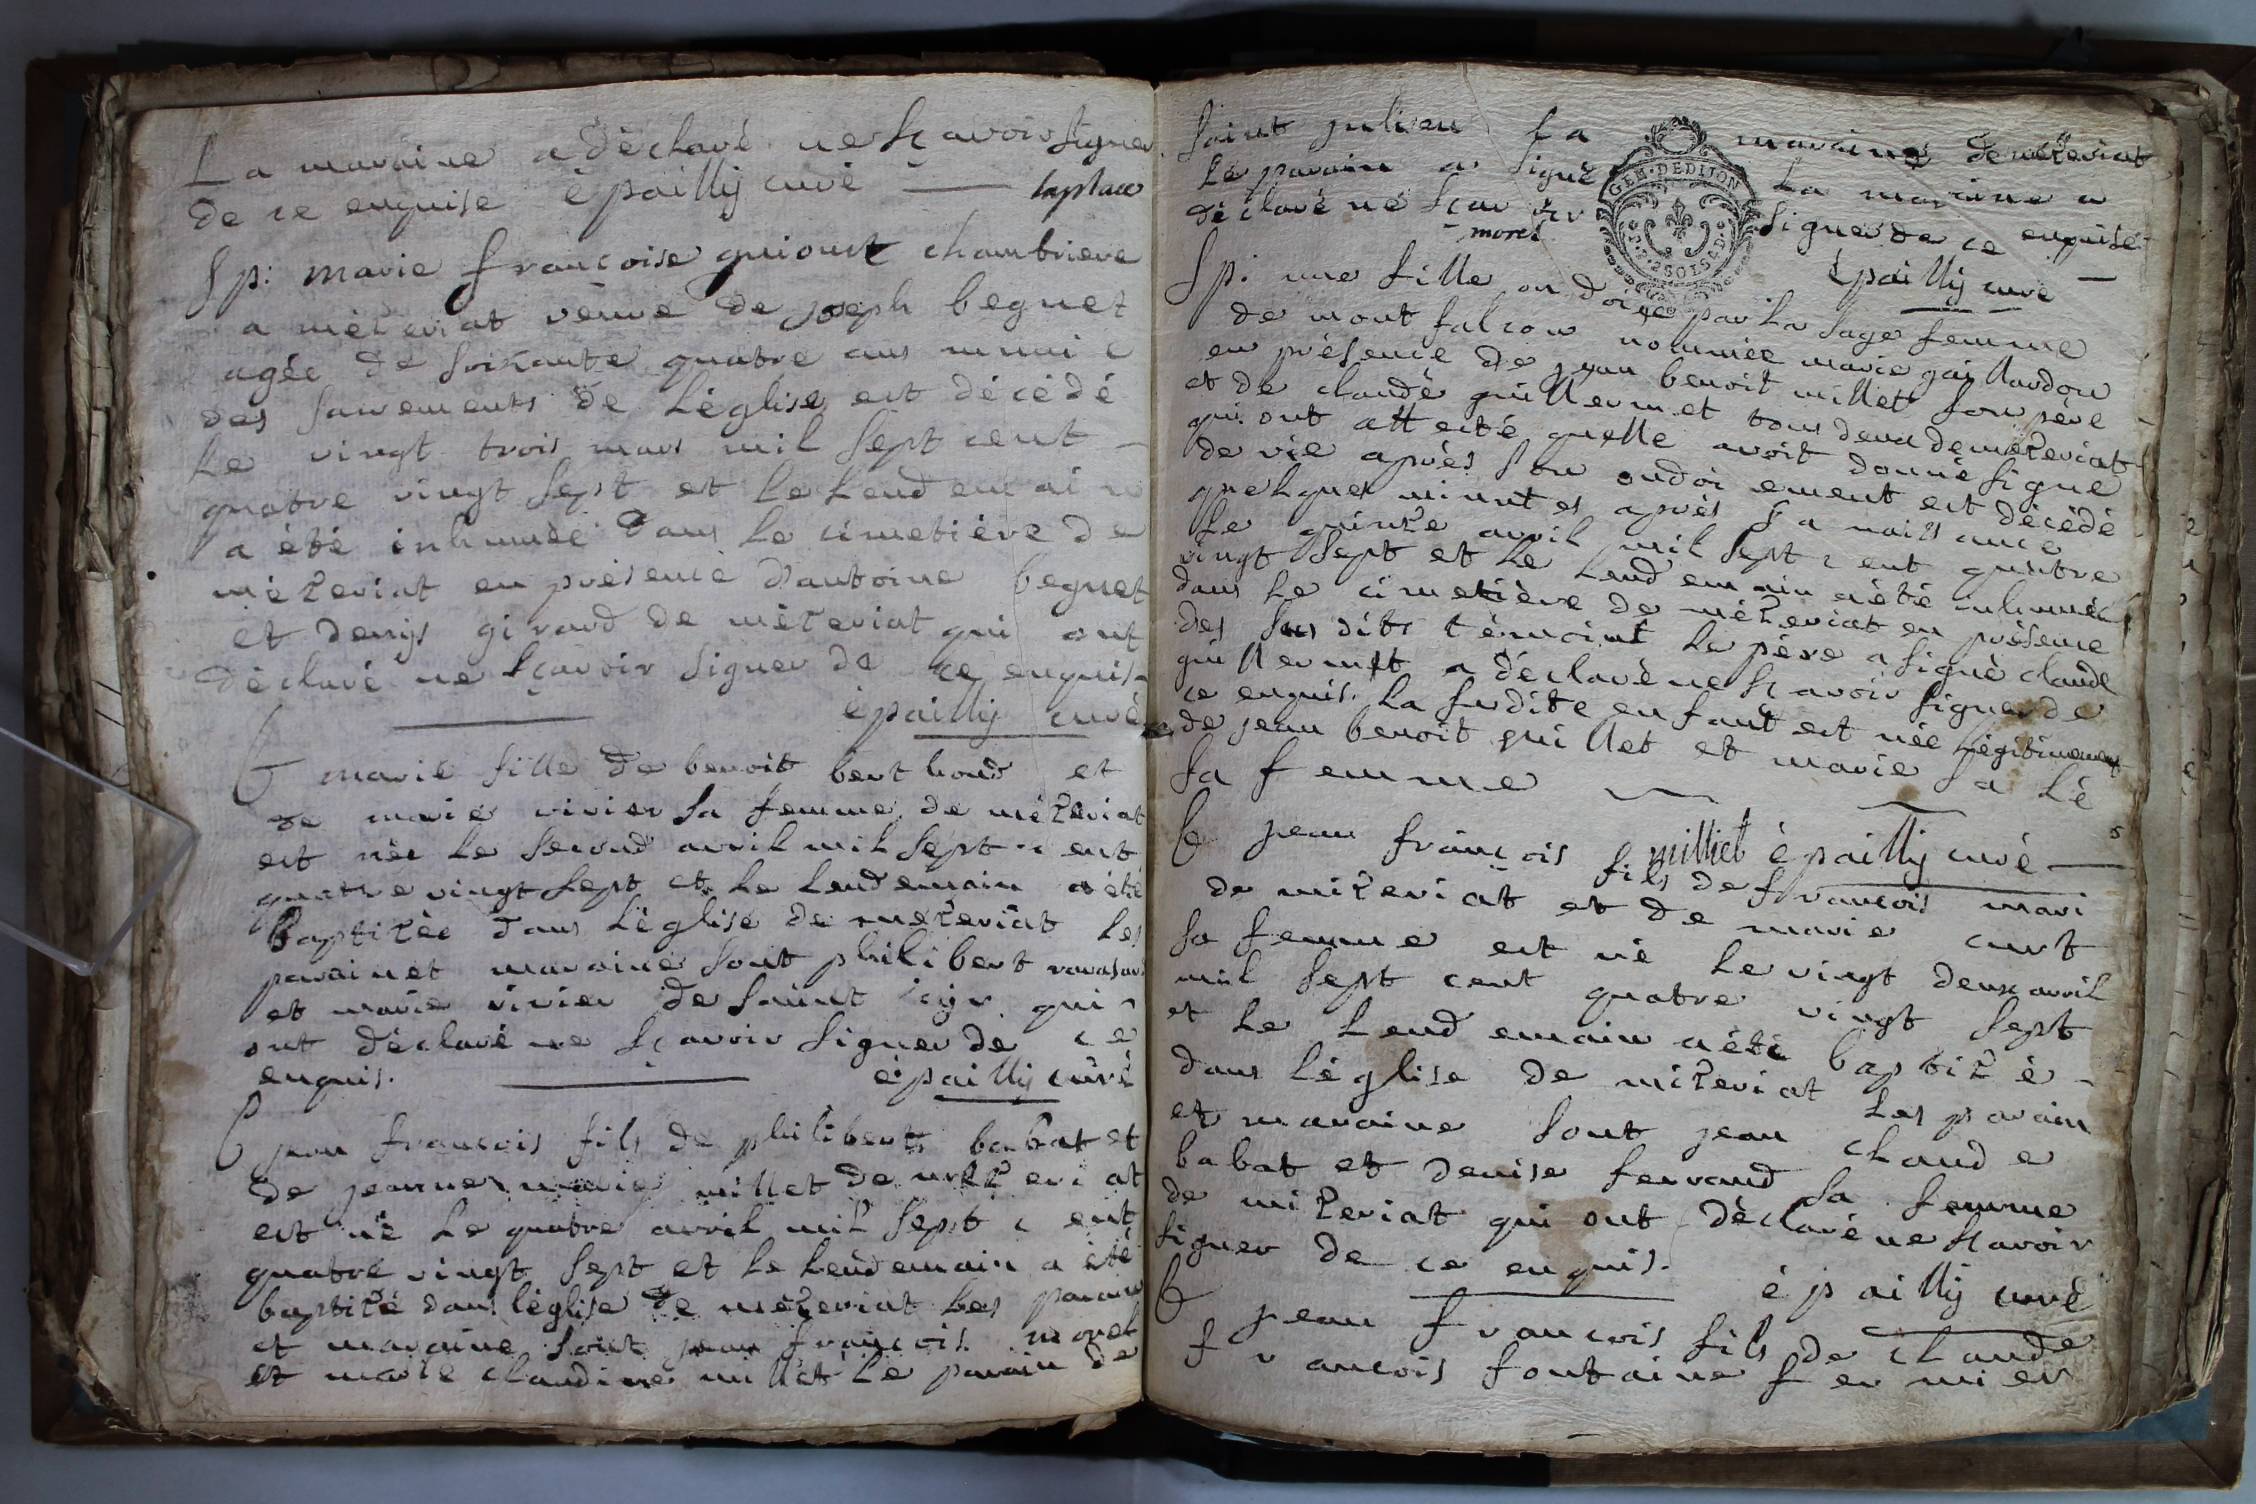 La maraine a déclaré ne sçavoir signer
de ce enquise épailly curé laplace
Sp: marie françoise guiourt chambriere
a mézeriat veuve de joseph beguet
agée de soixante quatre ans munie
des sacrements de L'église est décédé
Le vingt trois mars mil sept cent
quatre vingt sept et Le Lendemain
a été inhumée dans Le cimetière de
mézeriat en présence d'antoine beguet
et denijs girard de mézeriat qui ont
déclaré ne sçavoir signer de ce enquis.
épailly curé
B marie fille de benoit berthoud et
de marie vivier sa femme de mézeriat
est née Le second avril mil sept cent
quatre vingt sept et Le Lendemain a été
baptizée dans L'église de mézeriat Les
parain et maraine sont philibert
et marie vivier de saint cijr qui
ont déclaré ne sçavoir signer de ce
enquis. épailly curé
B jean françois fils de philibert babat et
de jeanne marie millet de mézeriat
est né Le quatre avril mil sept cent
quatre vingt sept et Le Lendemain a été
baptizé dans L'église de mézeriat Les parain
et maraine sont jean françois morel
et marie claudine millet Le parain de
saint julien La maraine de mézeriat
Le parain a signé La maraine a
déclaré ne sçavoir signer de ce enquise
morel épailly curé
GEN. DE DIJON
2 SOLS
Sp: une fille ondoiée par La sage femme
de montfalcon nommée marie gaillardon
en présence de jean benoit millet son père
et de claude guillermet tous deux de mézeriat
qui ont attesté quelle avoit donné signe
de vie après son ondoiement est décédé
quelques minutes après sa naissance
Le quinze avril mil sept cent quatre
vingt sept et Le Lendemain a été inhumée
dans Le cimetière de mézeriat en présence
des susdits témoins Le père a signé claude
guillermet a déclaré ne sçavoir signer de
ce enquis. La susdite enfant est née Légitimement
de jean benoit millet et marie
sa femme
milliet épailly curé
B jean françois fils de françois mari
de mizeriat et de marie curt
sa femme est né Le vingt deux avril
mil sept cent quatre vingt sept
et Le Lendemain a été baptizé
dans L'église de mizeriat Les parain
et maraine sont jean claude
babat et denise ferrand sa femme
de mizeriat qui ont déclaré ne sçavoir
signer de ce enquis. épailly curé
B jean françois fils de claude
françois fontaine fermier